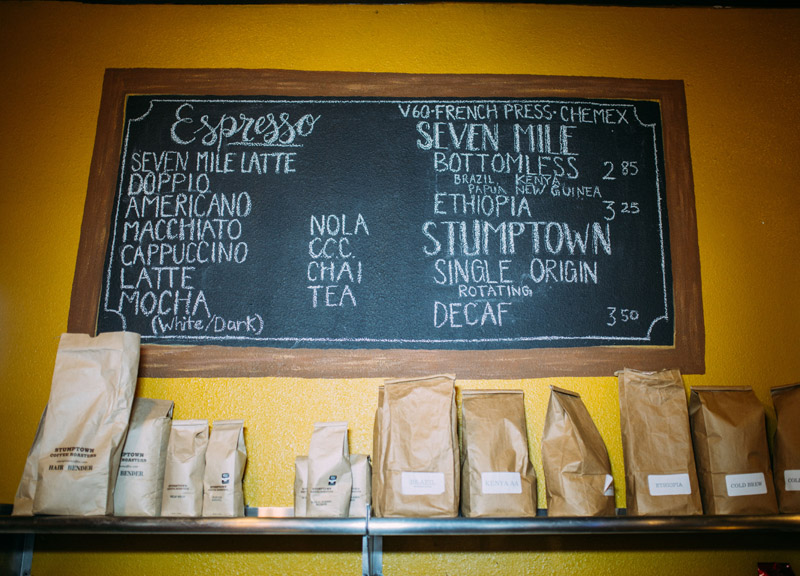 Espresso
SEVEN MILE LATTE
DOPPIO
AMERICANO
MACCHIATO
CAPPUCCINO
LATTE
MOCHA
(White/Dark)
NOLA
C.C.C.
CHAI
TEA
V60·FRENCH PRESS·CHEMEX
SEVEN MILE
BOTTOMLESS 2 85
BRAZIL KENYA
PAPUA NEW GUINEA
ETHIOPIA 3 25
STUMPTOWN
SINGLE ORIGIN
ROTATING
DECAF 3 50
STUMPTOWN
COFFEE ROASTERS
HAIR BENDER
BENDER
BRAZIL
KENYA AA
ETHIOPIA
COLD BREW
COLD